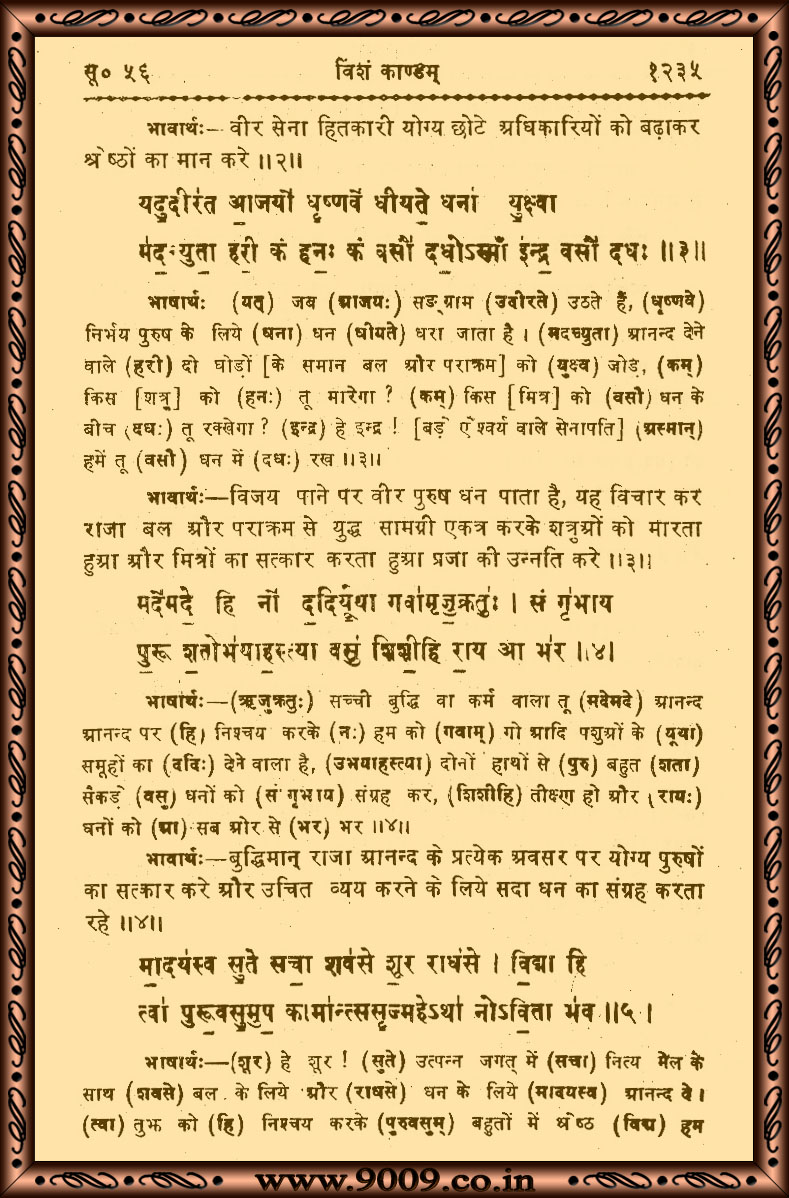 सू० ५६ विंशं काण्डम् १२३५
भावार्थः— वीर सेना हितकारी योग्य छोटे अधिकारियों को बढ़ाकर
श्रेष्ठों का मान करे ॥२॥
यदु॒दीर॑त आ॒जयो॑ धृ॒ष्णवे॑ धीयते॒ धना॑ यु॒क्ष्वा
म॑द॒च्युता॒ हरी॒ कं हनः॒ कं वसौ॑ दधो॒ऽस्माँ इ॑न्द्र॒ वसौ॑ दधः ॥३॥
भाषार्थः (यत्) जब (आजयः) सङ्ग्राम (उदीरते) उठते हैं, (धृष्णवे)
निर्भय पुरुष के लिये (धना) धन (धीयते) धरा जाता है। (मदच्युता) आनन्द देने
वाले (हरी) दो घोड़ों [के समान बल और पराक्रम] को (युक्ष्व) जोड़, (कम्)
किस [शत्रु] को (हनः) तू मारेगा ? (कम्) किस [मित्र] को (वसौ) धन के
बीच (दधः) तू रक्खेगा ? (इन्द्र) हे इन्द्र ! [बड़े ऐश्वर्य वाले सेनापति] (अस्मान्)
हमें तू (वसौ) धन में (दधः) रख ॥३॥
भावार्थः—विजय पाने पर वीर पुरुष धन पाता है, यह विचार कर
राजा बल और पराक्रम से युद्ध सामग्री एकत्र करके शत्रुओं को मारता
हुआ और मित्रों का सत्कार करता हुआ प्रजा की उन्नति करे ॥३॥
मदे॑मदे॒ हि नो॑ द॒दिर्यू॒था गवा॑मृजु॒क्रतुः॑ । सं गृ॑भाय
पु॒रू श॒तोभ॑याह॒स्त्या वसु॑ शिशी॒हि रा॒य आ भ॑र ॥४।
भाषार्थः—(ऋजुक्रतुः) सच्ची बुद्धि वा कर्म वाला तू (मदेमदे) आनन्द
आनन्द पर (हि) निश्चय करके (नः) हम को (गवाम्) गो आदि पशुओं के (यूथा)
समूहों का (ददिः) देने वाला है, (उभयाहस्त्या) दोनों हाथों से (पुरु) बहुत (शता)
सैंकड़े (वसु) धनों को (सं गृभाय) संग्रह कर, (शिशीहि) तीक्ष्ण हो और (रायः)
धनों को (आ) सब ओर से (भर) भर ॥४॥
भावार्थः—बुद्धिमान् राजा आनन्द के प्रत्येक अवसर पर योग्य पुरुषों
का सत्कार करे और उचित व्यय करने के लिये सदा धन का संग्रह करता
रहे ॥४॥
मा॒दय॑स्व सु॒ते सचा॒ शव॑से शूर॒ राध॑से । वि॒द्मा हि
त्वा॑ पुरू॒वसु॒मुप॒ कामा॑न्त्ससृ॒ज्महेऽथा॑ नोऽवि॒ता भ॑व ॥५।
भाषार्थः—(शूर) हे शूर ! (सुते) उत्पन्न जगत् में (सचा) नित्य मेल के
साथ (शवसे) बल के लिये और (राधसे) धन के लिये (मादयस्व) आनन्द दे।
(त्वा) तुझ को (हि) निश्चय करके (पुरुवसुम्) बहुतों में श्रेष्ठ (विद्म) हम
www.9009.co.in